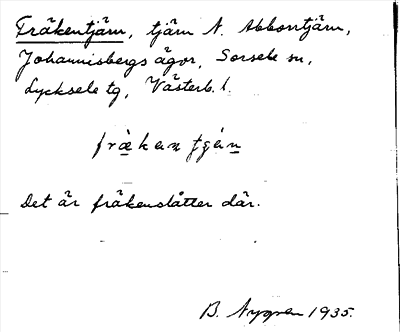 Fräkentjärn, tjärn N. Abborrtjärn,
Johannisbergs ägor, Sorsele sn,
Lycksele tg, Västerb. l.
fräken
Det är fräkenslåtter där.
B. Nygren 1935.